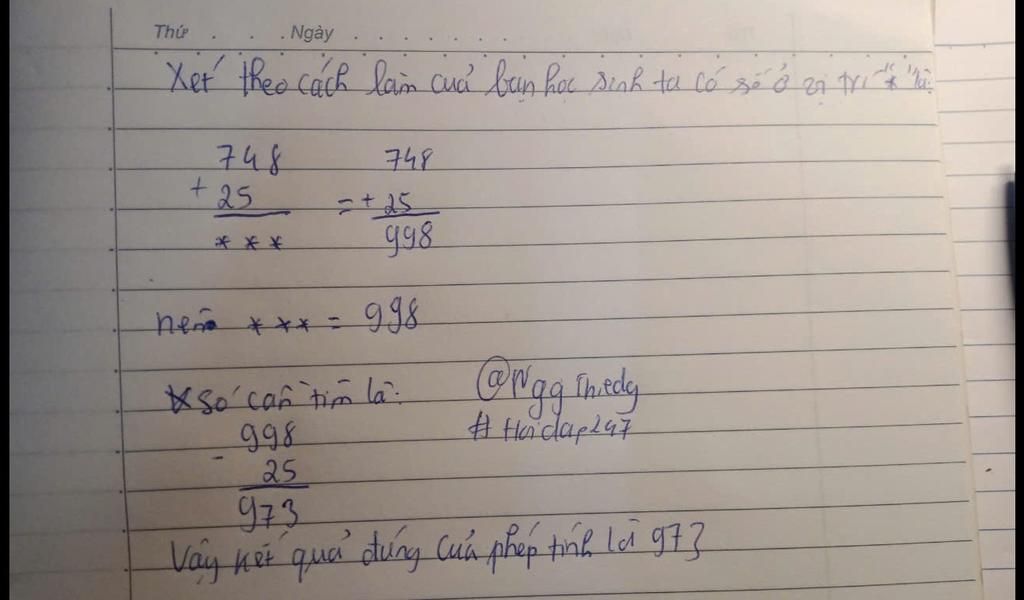 Thứ . . . Ngày . . . . . . .
Xét theo cách làm của bạn học sinh ta có số ở vị trí "*" là:
748 748
+ 25 = + 25
* * * 998
nên *** = 998
* số cần tìm là: @Ngg Thiedg
998 # Hoidap247
- 25
973
Vậy kết quả đúng của phép tính là 973